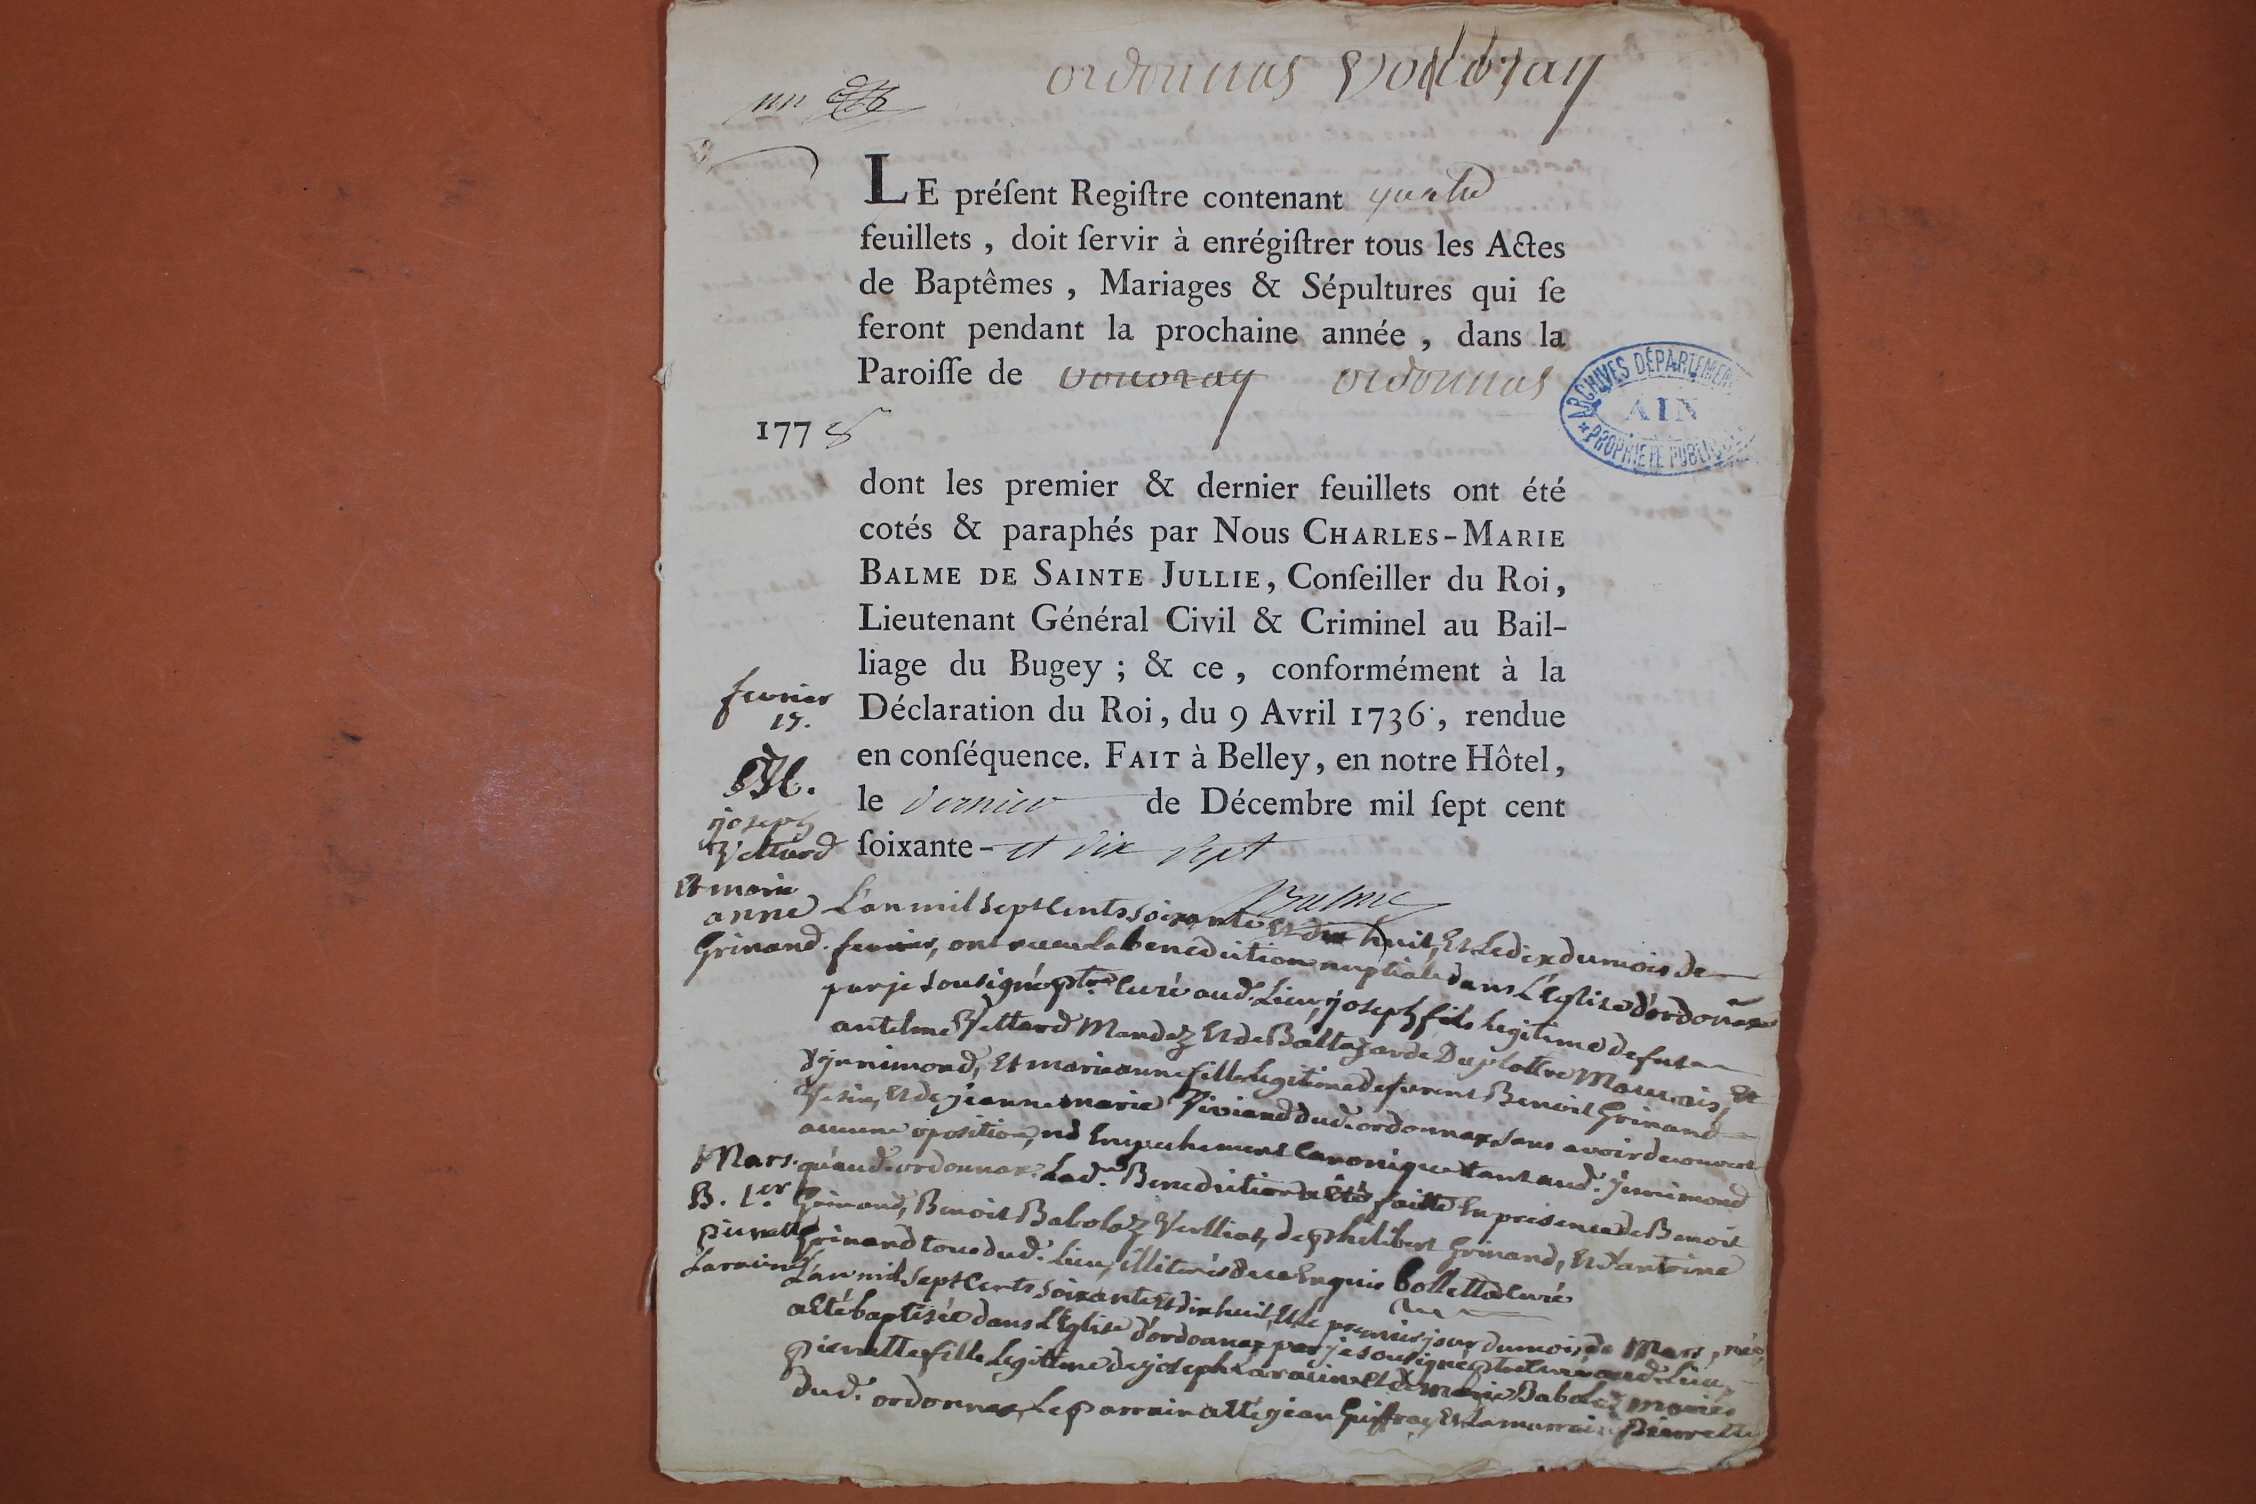 ordonnas Vouvray
un
LE préſent Regiſtre contenant quatre
feuillets , doit ſervir à enrégiſtrer tous les Actes
de Baptêmes , Mariages & Sépultures qui ſe
feront pendant la prochaine année , dans la
Paroiſſe de vouvray ordonnas
1778
ARCHIVES DÉPARTEMEN
AIN
PROPRIÉTÉ PUBLIQUE
dont les premier & dernier feuillets ont été
cotés & paraphés par Nous CHARLES-MARIE
BALME DE SAINTE JULLIE, Conſeiller du Roi,
Lieutenant Général Civil & Criminel au Bail-
liage du Bugey ; & ce , conformément à la
Déclaration du Roi, du 9 Avril 1736, rendue
en conſéquence. FAIT à Belley, en notre Hôtel,
le dernier de Décembre mil ſept cent
ſoixante- et dix sept
Balme
fevrier
M.
joseph
Vettard
Et marie
anne
Grinand.
L'an mil sept Cents soixante et dix huit, Et Le dix du mois de
fevrier, ont receu La benediction nuptiale dans L'Eglise d'ordonnax
par je sousigné ptre Curé aud. Lieu, joseph fils legitime de fut
antelme Vettard Mandez Et de Baltazarde Duplattre Mariés, Et
d'innimond, Et marie anne fille Legitime de furent Benoit Grinand
Et de jeanne marie Viviand dud. ordonnax sans avoir decouvert
aucune oposition, ni Empechement Canonique tant aud. innimond
qu'aud. ordonnax. Lad. Benediction a Eté faitte En presence de Benoit
Grinand, Benoit Babolaz, de philibert Grinand, Et d'antoine
Grinand tous dud. Lieu, illiterés de ce Enquis Collettaz Curé
Mars.
B. 1.er
pierrette
Laravine
L'an mil sept Cents soixante Et dix huit, Et Le premier jour du mois de Mars, née,
a Eté baptisée dans L'Eglise d'ordonnax par je sousigné ptre Curé aud. Lieu,
pierrette fille Legitime de joseph Laravine Et de marie Babolaz mariés
dud. ordonnax, Le parrain a Eté jean Guiffray, Et La marraine pierrette